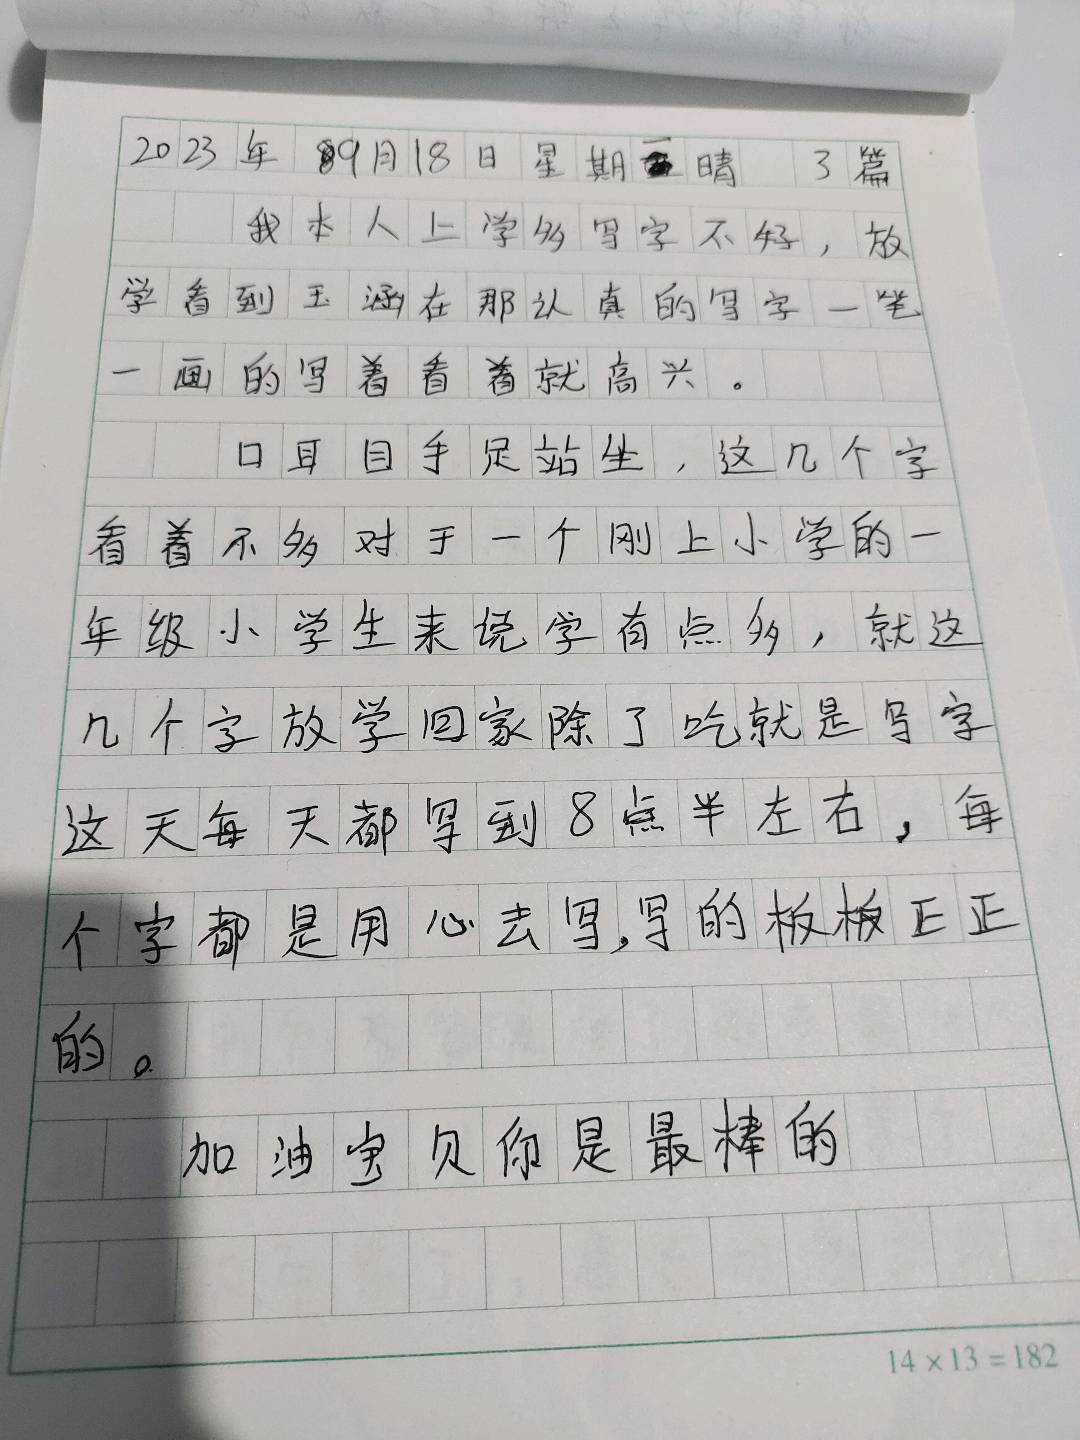 2023年 9月18日星期一晴 3篇
我本人上学多写字不好，放
学看到玉涵在那认真的写字一笔
一画的写着看着就高兴。
口耳目手足站坐，这几个字
看着不多对于一个刚上小学的一
年级小学生来说字有点多，就这
几个字放学回家除了吃就是写字
这天每天都写到8点半左右，每
个字都是用心去写，写的板板正正
的。
加油宝贝你是最棒的
14×13=182